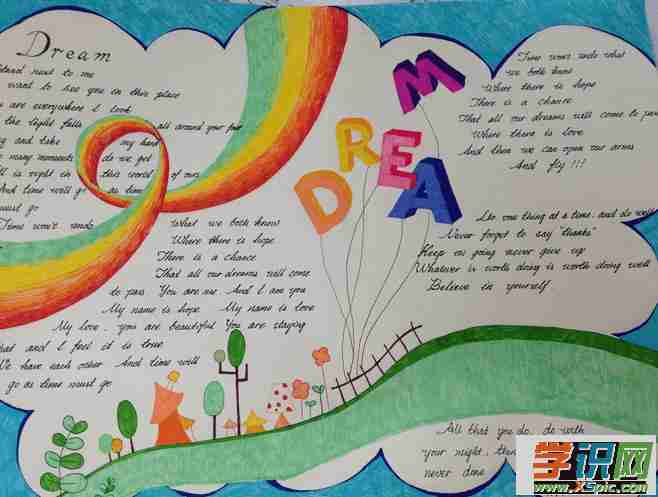 Dream
stand next to me
want to see you in this place
are everywhere I look
the light falls all around your feet
and take my hand
many moments do we get
is right in this world of ours
And time will go as time
must go
Time won't undo
What we both know
Where there is hope
There is a chance
That all our dreams will come
to pass You are me And I am you
My name is hope My name is love
My love, you are beautiful You are staying
that and I feel it is true
We have each other And time will
go as time must go
DREAM
Time won't undo what
we both know
Where there is hope
There is a chance
That all our dreams will come to pass
Where there is love
And then we can open our arms
And fly!!!
Do one thing at a time, and do well
Never forget to say "thanks"
Keep on going never give up
Whatever is worth doing is worth doing well
Believe in yourself
All that you do, do with
your might, then
never done
学识网
www.XSpic.com